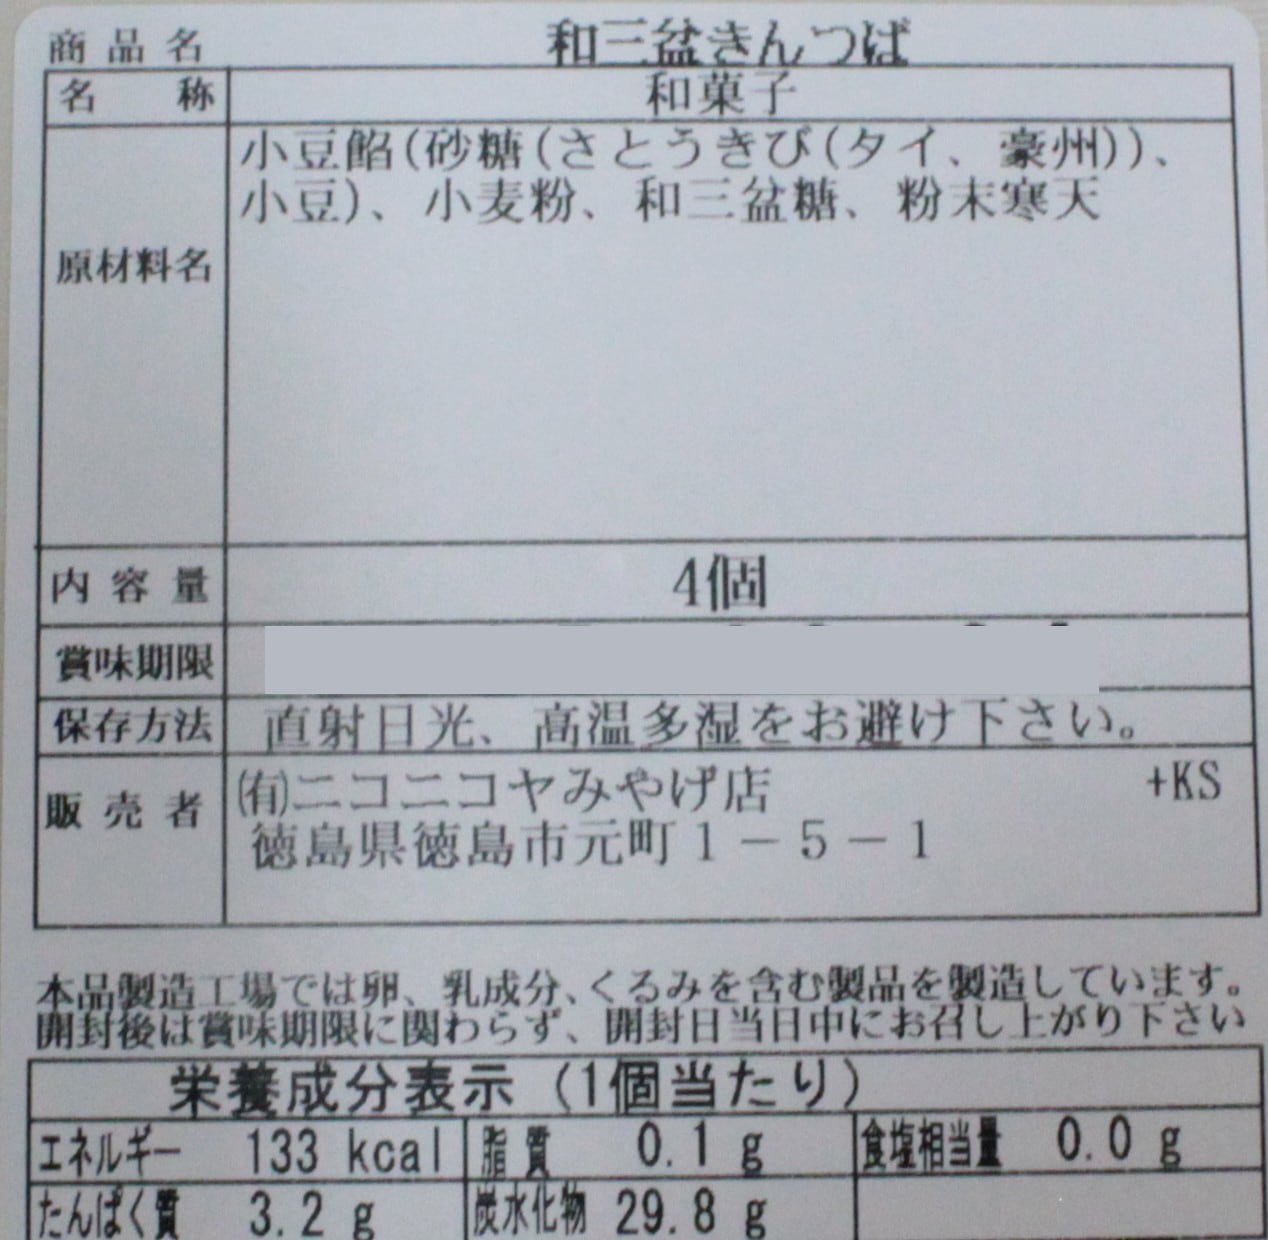 商品名 和三盆きんつば
名称 和菓子
原材料名 小豆餡(砂糖(さとうきび(タイ、豪州))、
小豆)、小麦粉、和三盆糖、粉末寒天
内容量 4個
賞味期限
保存方法 直射日光、高温多湿をお避け下さい。
販売者 ㈲ニコニコヤみやげ店 +KS
徳島県徳島市元町1-5-1
本品製造工場では卵、乳成分、くるみを含む製品を製造しています。
開封後は賞味期限に関わらず、開封日当日中にお召し上がり下さい
栄養成分表示 (1個当たり)
エネルギー 133 kcal 脂質 0.1 g 食塩相当量 0.0 g
たんぱく質 3.2 g 炭水化物 29.8 g